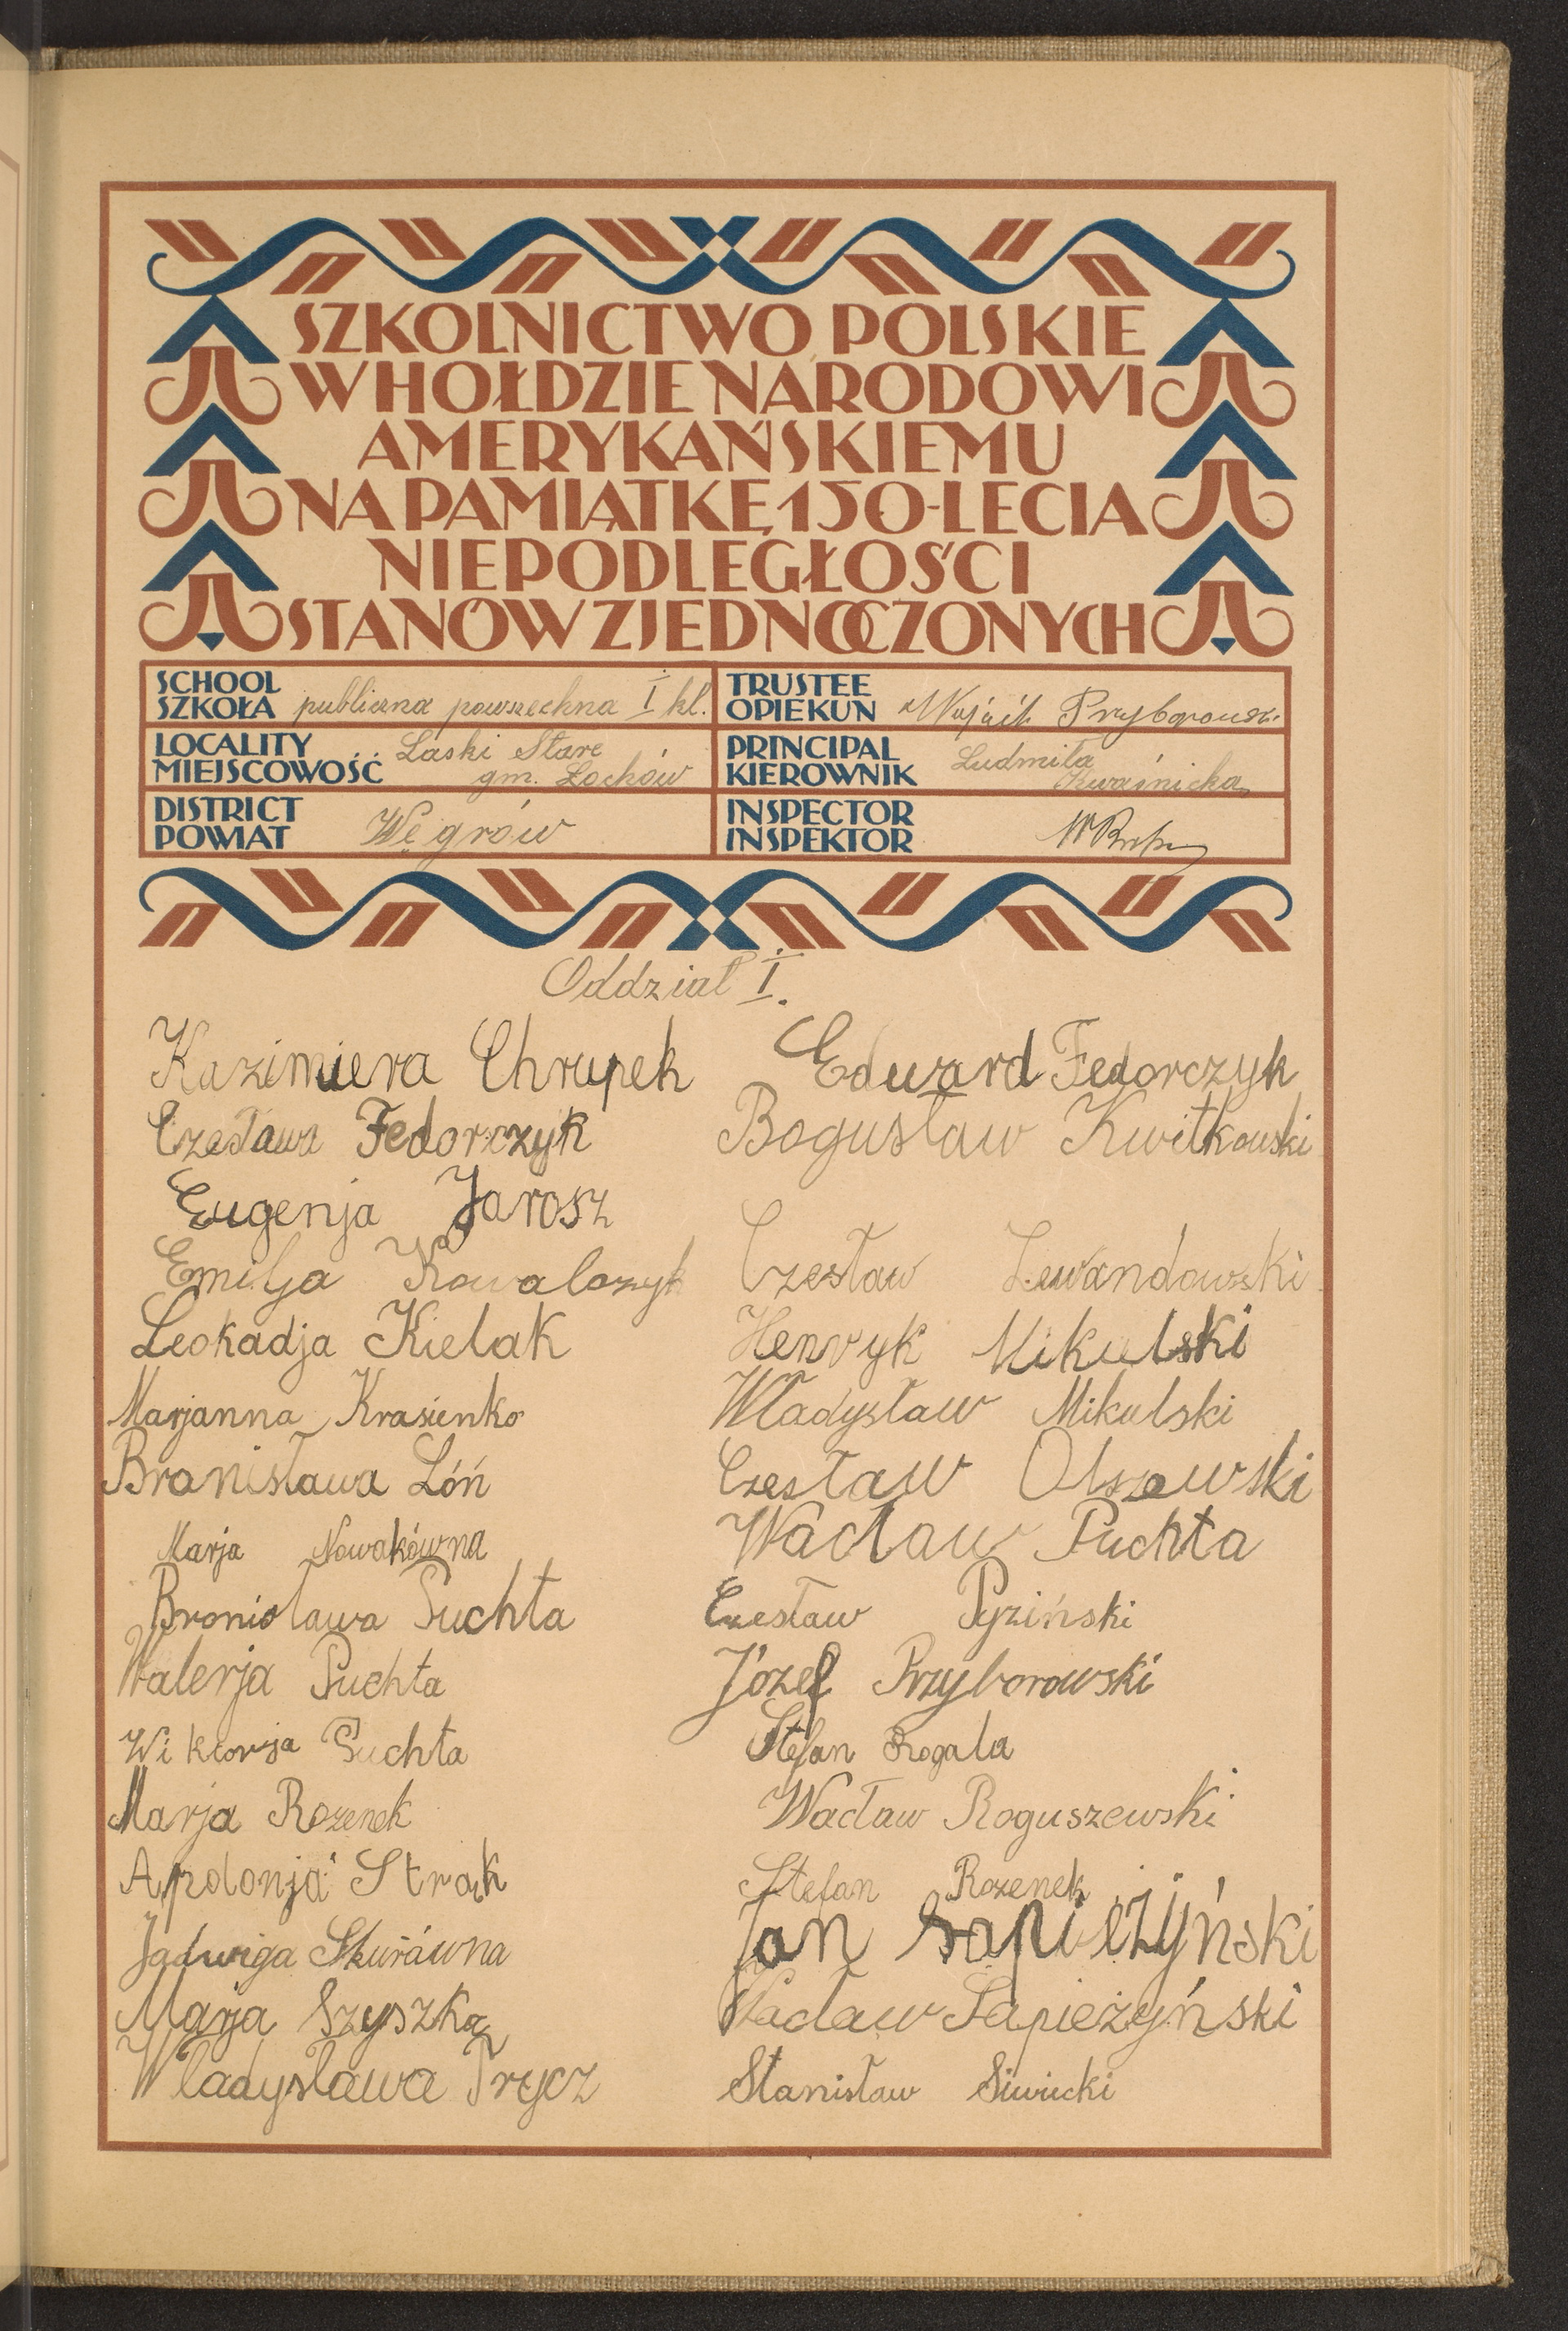 SZKOLNICTWO POLSKIE
W HOŁDZIE NARODOWI
AMERYKAŃSKIEMU
NA PAMIĄTKĘ 150-LECIA
NIEPODLEGŁOŚCI
STANÓW ZJEDNOCZONYCH
SCHOOL
SZKOŁA publiczna powszechna I kl.
TRUSTEE
OPIEKUN Wójcik Przyborowski
LOCALITY
MIEJSCOWOŚĆ Laski Stare
gm. Łochów
PRINCIPAL
KIEROWNIK Ludmiła
Kwaśnicka
DISTRICT
POWIAT Węgrów
INSPECTOR
INSPEKTOR
Oddział I.
Kazimiera Chrupek
Czesława Fedorczyk
Eugenja Jarosz
Emilja Kowalczyk
Leokadja Kielak
Marjanna Krasienko
Bronisława Lóń
Marja Nowakówna
Bronisława Puchta
Walerja Puchta
Wiktorja Puchta
Marja Rozenek
Apolonja Strak
Jadwiga Skurówna
Marja Szyszka
Władysława Trycz
Edward Fedorczyk
Bogusław Kwitkowski
Czesław Lewandowski
Henryk Mikulski
Władysław Mikulski
Czesław Olszewski
Wacław Puchta
Czesław Pyziński
Józef Przyborowski
Stefan Rogala
Wacław Roguszewski
Stefan Rozenek
Jan Sapieżyński
Wacław Sapieżyński
Stanisław Siwicki